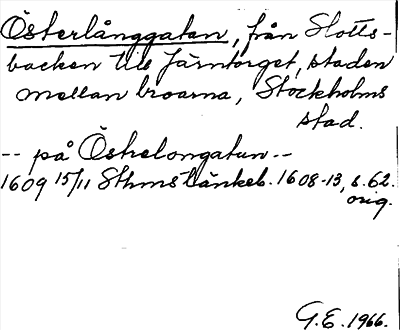 Österlånggatan, från Slotts-
backen till Järntorget, staden
mellan broarna, Stockholms
stad.
-- på Östrelongatun --
1609 15/11 Sthms tänkeb. 1608-13, s. 62.
orig.
G.E. 1966.